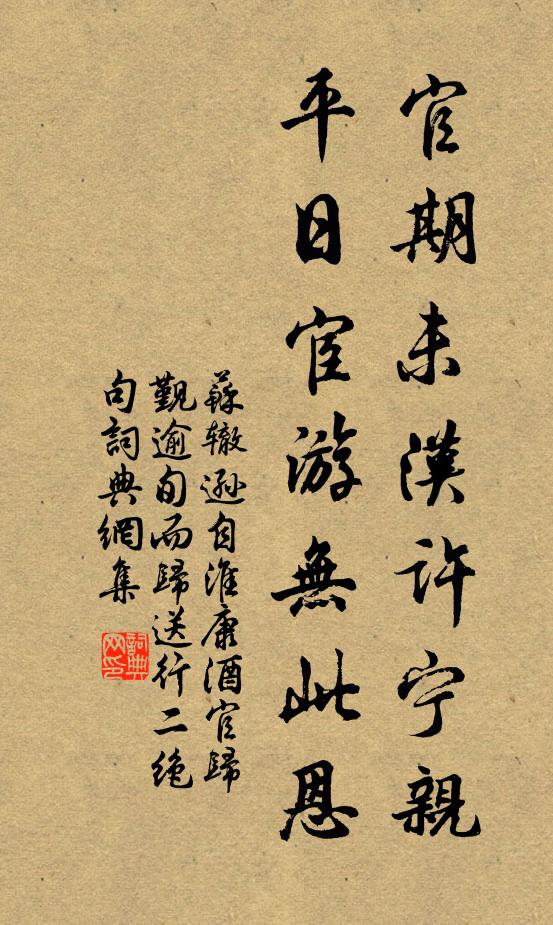 官期未滿許宁親
平日宦游無此恩
蘇辙遜自淮康酒官歸
覲逾旬而歸送行二絶
句詞典網集
詞典网印